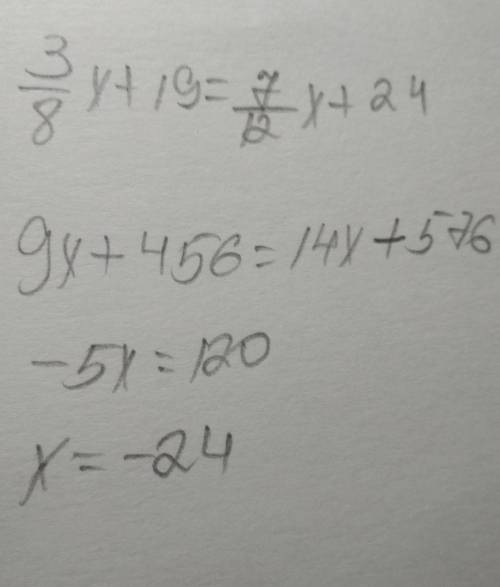 3/8 x + 19 = 7/12 x + 24
9x + 456 = 14x + 576
-5x = 120
x = -24